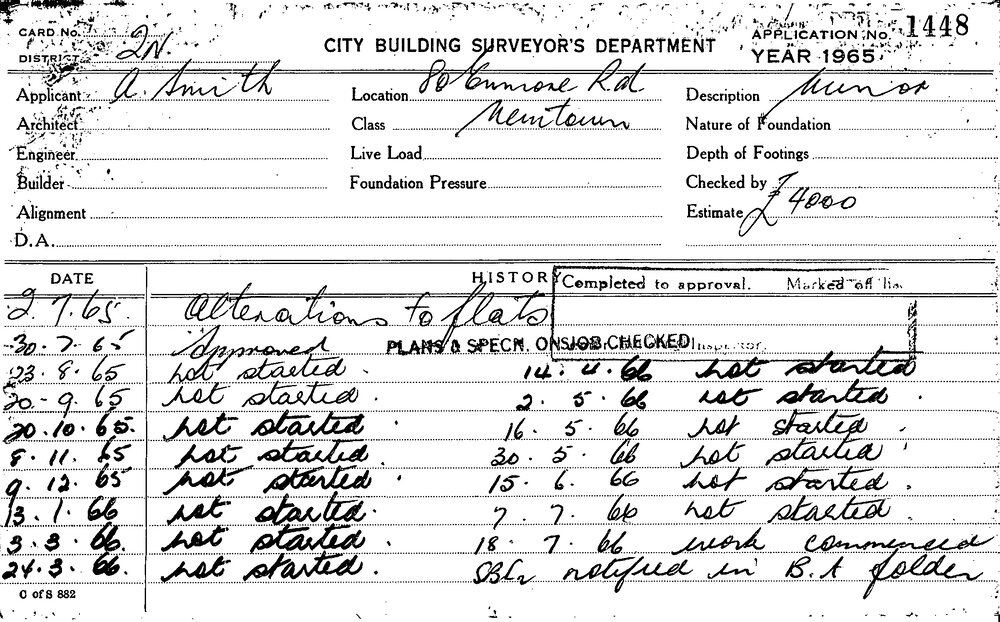 CARD No.
DISTRICT 2N.
CITY BUILDING SURVEYOR'S DEPARTMENT
APPLICATION No. 1448
YEAR 1965
Applicant A. Smith
Location 80 Enmore Rd
Description Minor
Architect
Class Newtown
Nature of Foundation
Engineer
Live Load
Depth of Footings
Builder
Foundation Pressure
Checked by
Alignment
Estimate £ 4000
D.A.
DATE
HISTORY
Completed to approval. Marked off
2.7.65. Alterations to flats
30.7.65 Approved
PLANS & SPECN. ON JOB CHECKED Inspector.
23.8.65 not started.
14.4.66 not started
20.9.65 not started.
2.5.66 not started.
20.10.65. not started.
16.5.66 not started.
8.11.65 not started.
30.5.66 not started.
9.12.65 not started.
15.6.66 not started.
13.1.66 not started.
7.7.66 not started.
3.3.66. not started.
18.7.66 work commenced
24.3.66. not started.
notified in B.A folder
C of S 882